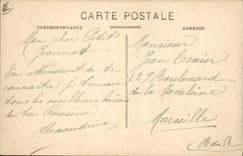 CARTE POSTALE
CORRESPONDANCE
ADRESSE
Mon cher Petit
Jeannot
En attendant de te
connaître je t'envoie
tous les meilleurs baisers
de ta cousine
Alexandrine
Monsieur
Jean Texier
229 Boulevard
de la Madeleine
Marseille
B du R